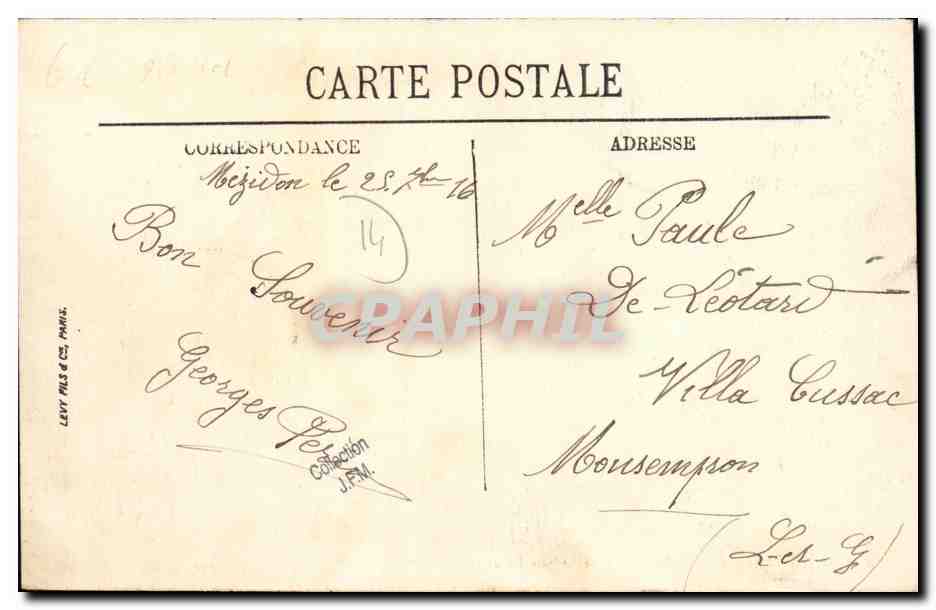 CARTE POSTALE
CORRESPONDANCE
Mézidon le 25 7bre 16
14
Bon
Souvenir
Georges
Collection
J.F.M.
LEVY FILS & Cie, PARIS.
ADRESSE
Melle Paule
De-Léotard
Villa Cussac
Monsempron
(L-et-G)
CPARAPHIL